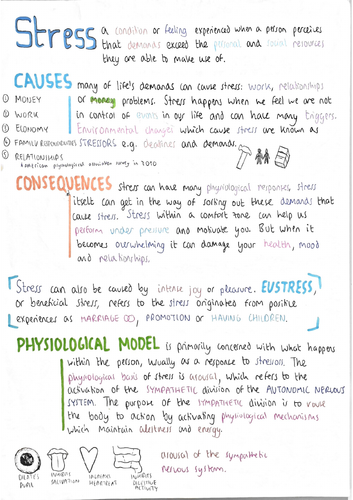 Stress a condition or feeling experienced when a person perceives
that demands exceed the personal and social resources
they are able to make use of.
CAUSES many of life's demands can cause stress: work, relationships
① MONEY or money problems. Stress happens when we feel we are not
② WORK in control of events in our life and can have many triggers.
③ ECONOMY Environmental changes which cause stress are known as
④ FAMILY RESPONSIBILITIES STRESSORS e.g. deadlines and demands.
⑤ RELATIONSHIPS
American psychological association survey in 2010
CONSEQUENCES stress can have many physiological responses, stress
itself can get in the way of sorting out these demands that
cause stress. Stress within a comfort zone can help us
perform under pressure and motivate you. But when it
becomes overwhelming it can damage your health, mood
and relationships.
Stress can also be caused by intense joy or pleasure. EUSTRESS,
or beneficial stress, refers to the stress originated from positive
experiences as MARRIAGE, PROMOTION or HAVING CHILDREN.
PHYSIOLOGICAL MODEL is primarily concerned with what happens
within the person, usually as a response to stressors. The
physiological basis of stress is arousal, which refers to the
activation of the SYMPATHETIC division of the AUTONOMIC NERVOUS
SYSTEM. The purpose of the SYMPATHETIC division is to rouse
the body to action by activating physiological mechanisms
which maintain alertness and energy.
arousal of the sympathetic
nervous system.
DILATES
PUPIL
INHIBITS
SALIVATION
INCREASES
HEARTBEAT
INHIBITS
DIGESTIVE
ACTIVITY